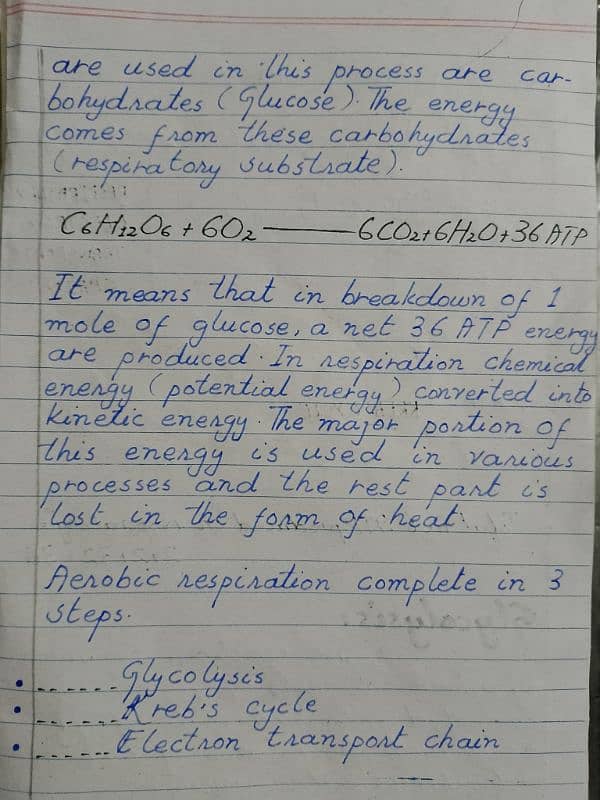 are used in this process are car-
bohydrates (Glucose). The energy
comes from these carbohydrates
(respiratory substrate).
C6H12O6 + 6O2 ——— 6CO2+6H2O+36 ATP
It means that in breakdown of 1
mole of glucose, a net 36 ATP energy
are produced. In respiration chemical
energy (potential energy) converted into
kinetic energy. The major portion of
this energy is used in various
processes and the rest part is
lost in the form of heat
Aerobic respiration complete in 3
steps.
• ------Glycolysis
• ------Kreb's cycle
• ------Electron transport chain